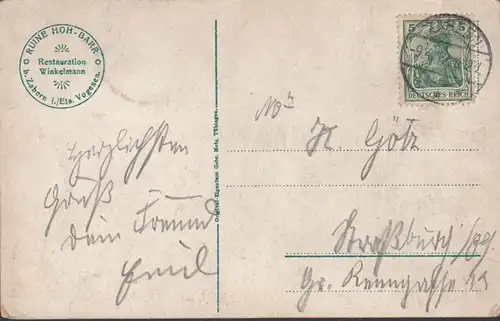 RUINE HOH-BARR
Restauration
Winkelmann
b. Zabern i./Els. Vogesen.
5
DEUTSCHES REICH
Herzlichsten
Gruß
Dein Freund
Emil
Original-Eigentum Gebr. Metz, Tübingen.
H. Götz
Straßburg
Gr. Renngasse